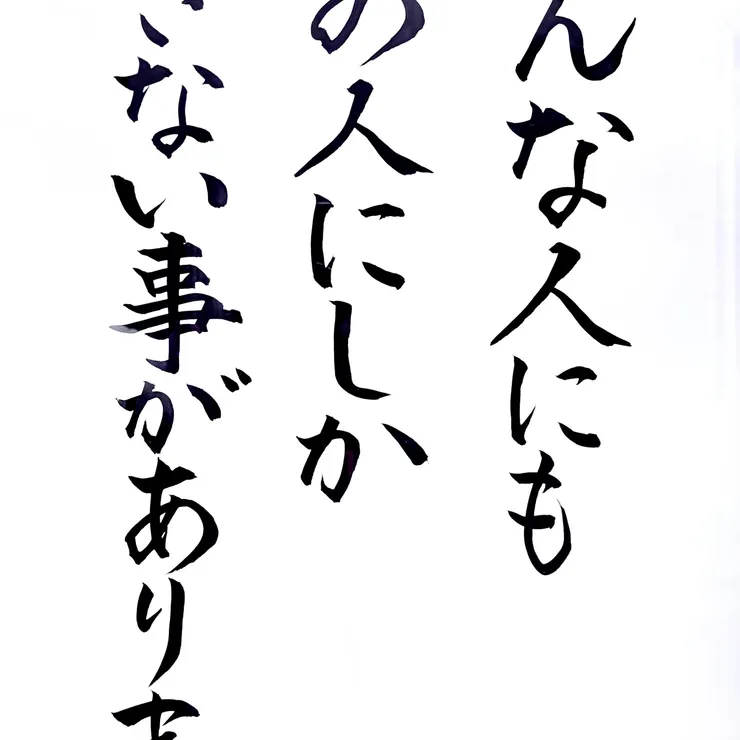 んな人にも
の人にしか
きない事がありま